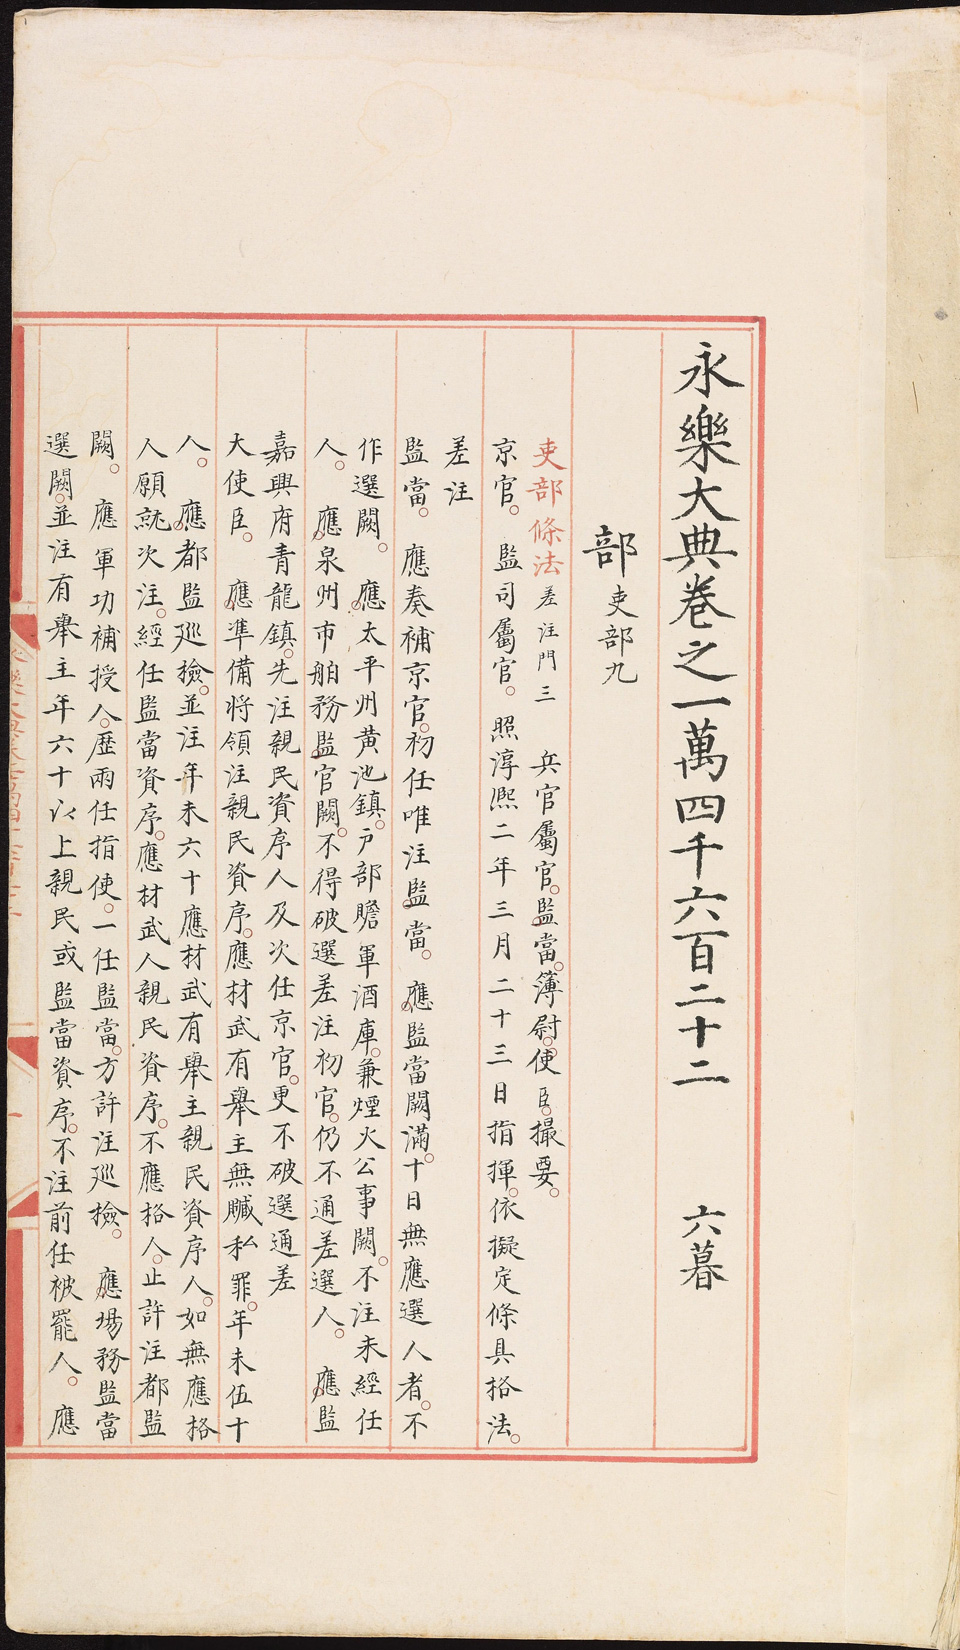 永樂大典卷之一萬四千六百二十二　六暮
部　吏部九
吏部條法　差注門三　兵官屬官。監當。簿尉。使臣。撮要。
京官。　監司屬官。照淳熙二年三月二十三日指揮。依擬定條具格法。
差注
監當。　應奏補京官。初任唯注監當。　應監當闕滿。十日無應選人者。不
作選闕。　應太平州黃池鎮。戶部贍軍酒庫。兼煙火公事闕。不注未經任
人。　應泉州市舶務監官闕。不得破選差注初官。仍不通差選人。　應監
嘉興府青龍鎮。先注親民資序人及次任京官。更不破選通差
大使臣。　應準備將領注親民資序。應材武有舉主無贓私罪。年未伍十
人。　應都監廵檢。並注年未六十應材武有舉主親民資序人。如無應格
人願就次注。經任監當資序。應材武人親民資序。不應格人。止許注都監
闕。　應軍功補授人。歷兩任指使。一任監當。方許注廵檢。　應場務監當
選闕。並注有舉主年六十以上親民或監當資序。不注前任被罷人。　應